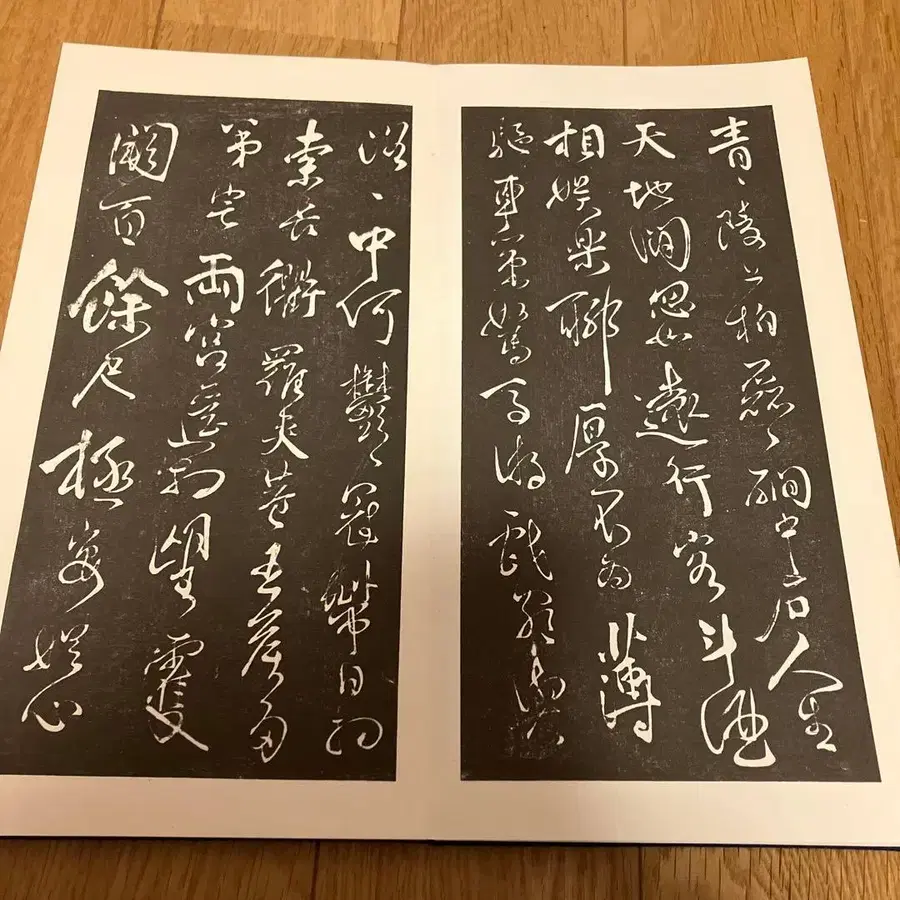 青〻陵上柏磊〻磵中石人生
天地間忽如遠行客斗酒
相娛樂聊厚不為薄
驅車策駑馬游戲宛與
洛〻中何鬱〻冠帶自相
索長衢羅夾巷王侯多
第宅兩宮遙相望雙
闕百餘尺極宴娛心